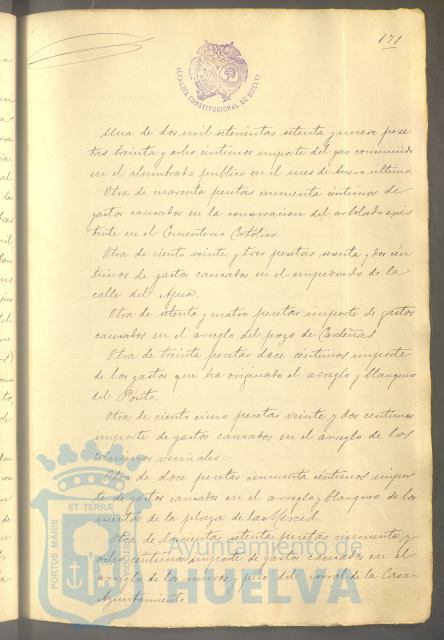 171
ALCALDIA CONSTITUCIONAL DE HUELVA
Una de dos mil setecientas setenta y nueve pese-
tas treinta y ocho céntimos importe del gas consumido
en el alumbrado publico en el mes de Enero último.
Otra de cuarenta pesetas cincuenta céntimos de
gastos causados en la conservacion del arbolado exis-
tente en el Cementerio Católico.
Otra de ciento veinte y tres pesetas sesenta y dos cén-
timos de gastos causados en el empedrado de la
calle del Agua.
Otra de setenta y cuatro pesetas importe de gastos
causados en el arreglo del pozo de Cardeñas
Otra de treinta pesetas doce céntimos importe
de los gastos que ha originado el arreglo y blanqueo
del Pósito.
Otra de ciento cinco pesetas veinte y dos céntimos
importe de gastos causados en el arreglo de los
caminos vecinales.
Otra de doce pesetas cincuenta céntimos impor-
te de gastos causados en el arreglo y blanqueo de los
asientos de la plaza de la Merced.
Otra de doscientas setenta pesetas cincuenta y
ocho céntimos importe de gastos causados en el
arreglo de los muros y piso del corral de la Casa-
Ayuntamiento
PORTUS MARIS ET TERRAE
Ayuntamiento de
HUELVA